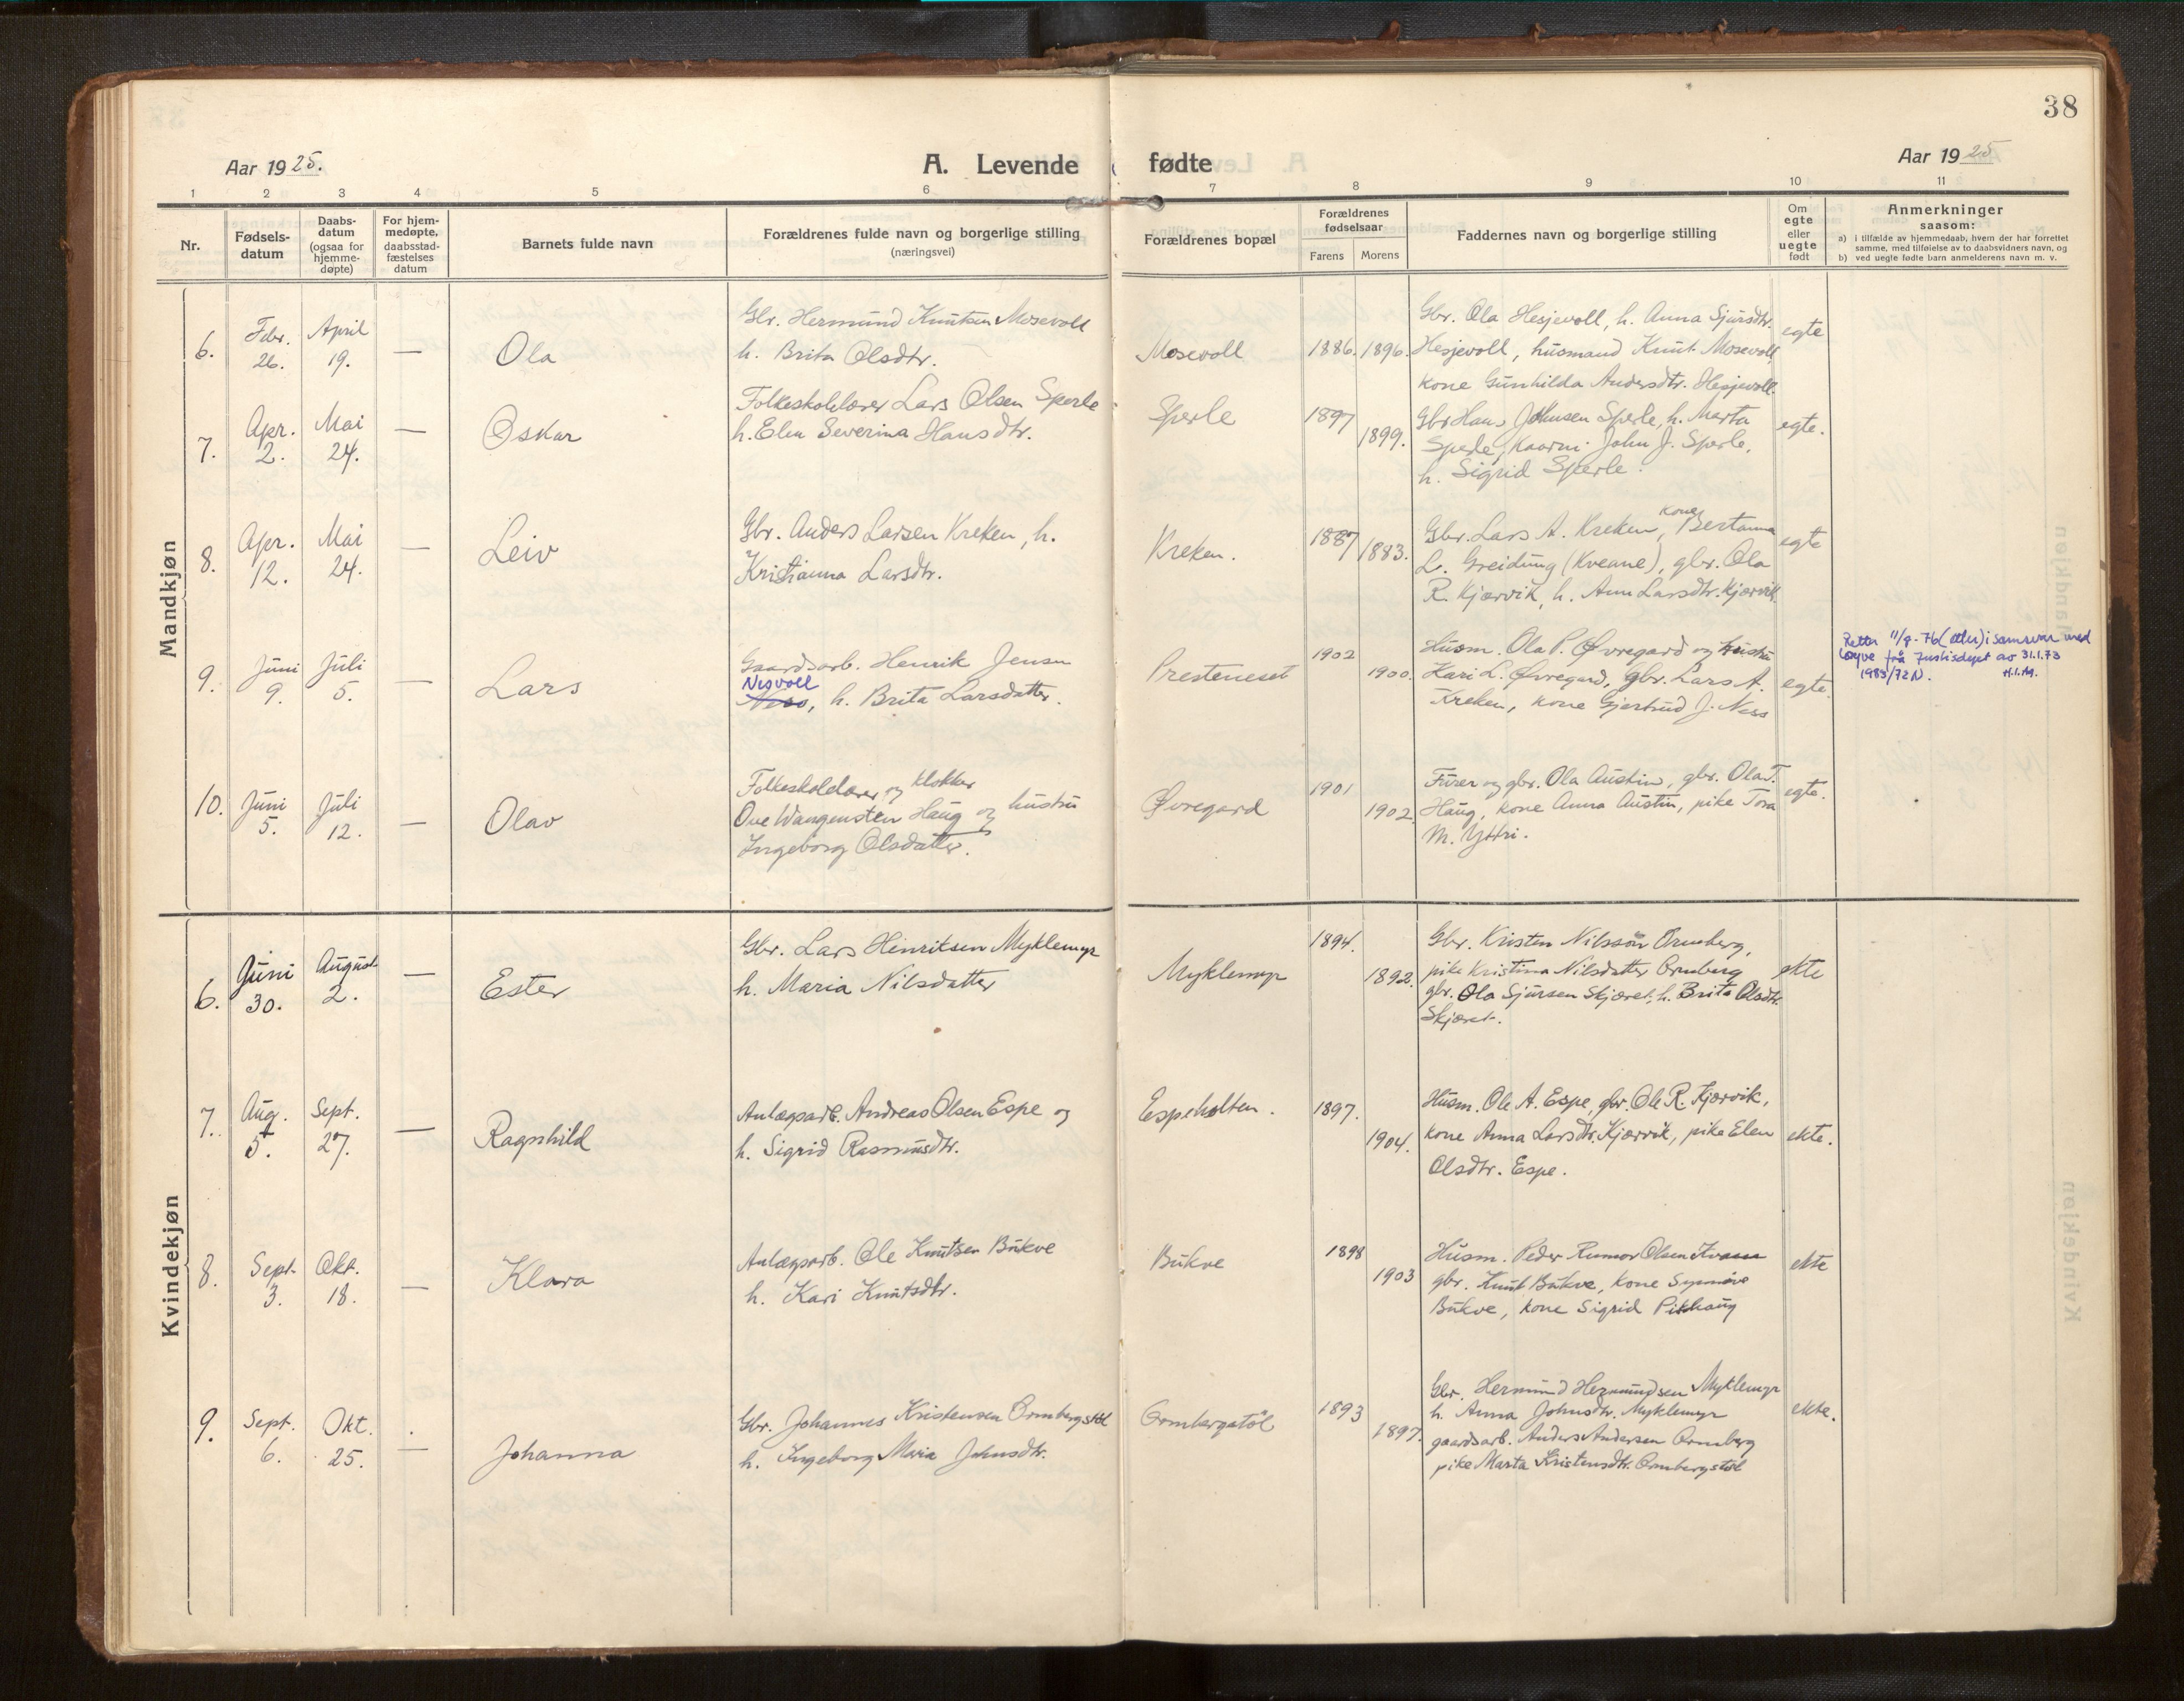 38
Aar 1925.
A. Levende fødte
Aar 1925
1 2 3 4 5 6 7 8 9 10 11
Nr.
Fødsels-
datum
Daabs-
datum
(ogsaa for
hjemme-
døpte)
For hjem-
medøpte,
daabsstad-
fæstelses
datum
Barnets fulde navn
Forældrenes fulde navn og borgerlige stilling
(næringsvei)
Forældrenes bopæl
Forældrenes
fødselsaar
Farens Morens
Faddernes navn og borgerlige stilling
Om
egte
eller
uegte
født
Anmerkninger
saasom:
a) i tilfælde av hjemmedaab, hvem der har forrettet
samme, med tilføielse av to daabsvidners navn, og
b) ved uegte fødte barn anmelderens navn m. v.
Mandkjøn
6.
Febr.
26.
April
19.
—
Ola
Gbr. Hermund Knutsen Mosevoll
h. Brita Olsdtr.
Mosevoll
1886. 1896.
Gbr. Ola Hesjevoll, h. Anna Sjursdtr.
Hesjevoll, husmand Knut Mosevoll,
kone Gunhilda Andersdtr. Hesjevoll
egte
7.
Apr.
2.
Mai
24.
—
Oskar
Folkeskolelærer Lars Olsen Sperle
h. Elen Severina Hansdtr.
Sperle
1897
1899.
Gbr Hans Johnsen Sperle, h. Marta
Sperle, kaarm. John J. Sperle,
h. Sigrid Sperle.
egte.
8.
Apr.
12.
Mai
24.
—
Leiv
Gbr. Anders Larsen Kreken, h.
Kristianna Larsdtr.
Kreken.
1887
1883.
Gbr. Lars A. Kreken, kone Bertanna
L. Greidung (Kveane), gbr. Ola
R. Kjørvik, h. Anna Larsdtr. Kjørvik.
egte
9.
Juni
9.
Juli
5.
—
Lars
Gaardsarb. Henrik Jensen
Nesvoll
Ness, h. Brita Larsdatter.
Presteneset
1902
1900.
Husm. Ola P. Øvregard og hustru
Kari L. Øvregard, gbr. Lars A.
Kreken, kone Gjertrud J. Ness
egte.
Retta 11/8-76 (etter) i samsvar med
løyve frå Justisdept av 31.1.73
1983/72 N. H.I.M.
10.
Juni
5.
Juli
12.
—
Olav
Folkeskolelærer og klokker
Ove Wangensten Haug og hustru
Ingeborg Olsdatter.
Øvregard
1901
1902.
Furer og gbr. Ola Austin, gbr. Ola T.
Haug, kone Anna Austin, pike Tora
M. Yttri.
egte.
Kvindekjøn
6.
Juni
30.
August
2.
—
Ester
Gbr. Lars Henriksen Myklemyr
h. Maria Nilsdatter
Myklemyr
1894.
1892.
Gbr. Kristen Nilsson Ormberg,
pike Kristina Nilsdatter Ormberg
gbr. Ola Sjursen Skjæret, h. Brita Olsdtr.
Skjæret.
ekte
7.
Aug.
5.
Sept.
27.
—
Ragnhild
Anlægsarb. Andreas Olsen Espe og
h. Sigrid Rasmusdtr.
Espeholten.
1897.
1904.
Husm. Ole A. Espe, gbr. Ole R. Kjørvik,
kone Anna Larsdtr. Kjørvik, pike Elen
Olsdtr. Espe.
ekte.
8.
Sept.
3.
Okt.
18.
—
Klara
Anlægsarb. Ole Knutsen Bukve
h. Kari Knutsdtr.
Bukve
1898
1903
Husm. Peder Olsen
gbr. Knut Bukve, kone Synnøve
Bukve, kone Sigrid Pikhaug
ekte
9.
Sept.
6.
Okt.
25.
—
Johanna
Gbr. Johannes Kristensen Ormbergstøl
h. Ingeborg Maria Johnsdtr.
Ormbergstøl
1893
1897.
Gbr. Hermund Hermundsen Myklemyr
h. Anna Johnsdtr. Myklemyr
gaardsarb. Anders Andersen Ormberg
pike Marta Kristensdtr. Ormbergstøl
ekte.